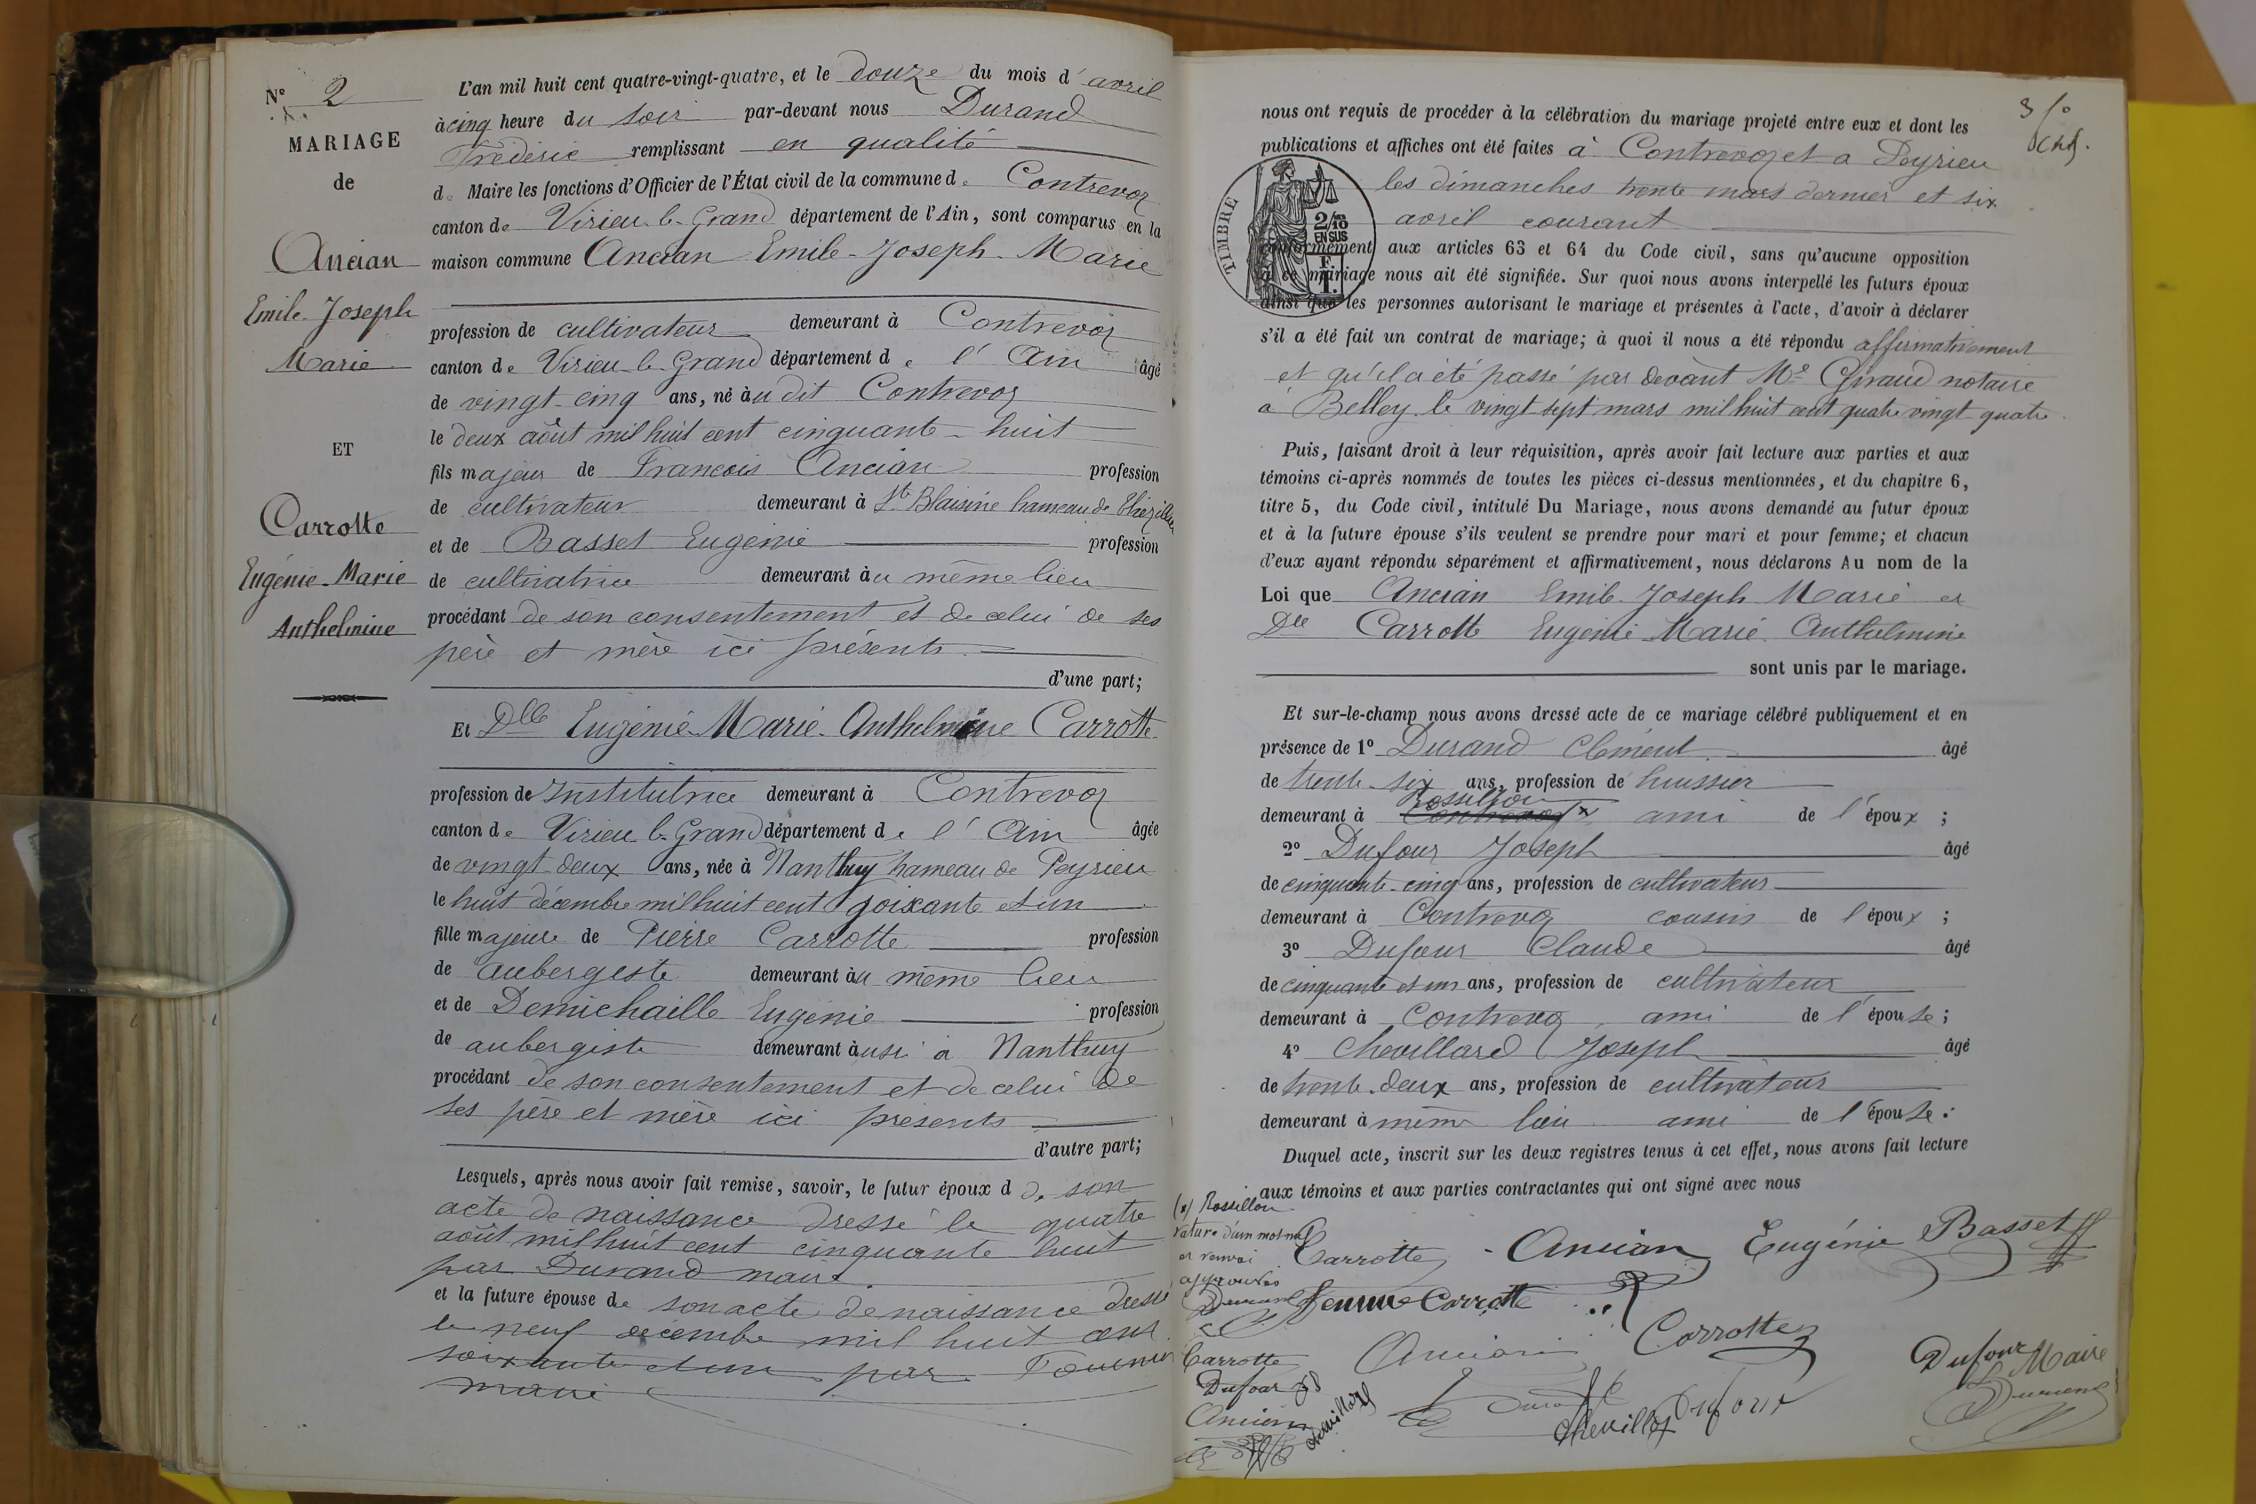 N° 2
MARIAGE
de
Ancian
Emile Joseph
Marie
ET
Carrotte
Eugénie Marie
Anthelmine
L'an mil huit cent quatre-vingt-quatre, et le douze du mois d'avril
à cinq heure du soir par-devant nous Durand
Frédéric remplissant en qualité
de Maire les fonctions d'Officier de l'État civil de la commune de Contrevoz
canton de Virieu-le-Grand département de l'Ain, sont comparus en la
maison commune Ancian Emile-Joseph-Marie
profession de cultivateur demeurant à Contrevoz
canton de Virieu-le-Grand département de l'Ain âgé
de vingt-cinq ans, né àu dit Contrevoz
le deux août mil huit cent cinquante-huit
fils majeur de François Ancian profession
de cultivateur demeurant à St Blaisine hameau de
et de Basset Eugénie profession
de cultivatrice demeurant àu même lieu
procédant de son consentement et de celui de ses
père et mère ici présents
d'une part;
Et Dlle Eugénie-Marie-Anthelmine Carrotte
profession de Institutrice demeurant à Contrevoz
canton de Virieu-le-Grand département de l'Ain âgée
de vingt-deux ans, née à Nanthuy hameau de Peyrieu
le huit décembre mil huit cent soixante et un
fille majeure de Pierre Carrotte profession
de aubergiste demeurant àu même lieu
et de Demichaille Eugénie profession
de aubergiste demeurant àussi à Nanthuy
procédant de son consentement et de celui de
ses père et mère ici présents
d'autre part;
Lesquels, après nous avoir fait remise, savoir, le futur époux d de son
acte de naissance dressé le quatre
août mil huit cent cinquante huit
par Durand maire.
et la future épouse de son acte de naissance dressé
le neuf décembre mil huit cent
soixante et un par
maire
3 fo
nous ont requis de procéder à la célébration du mariage projeté entre eux et dont les
publications et affiches ont été faites à Contrevoz et a Peyrieu
les dimanches trente mars dernier et six
avril courant
TIMBRE
2/10
EN SUS
F.
1.
conformément aux articles 63 et 64 du Code civil, sans qu'aucune opposition
à ce mariage nous ait été signifiée. Sur quoi nous avons interpellé les futurs époux
ainsi que les personnes autorisant le mariage et présentes à l'acte, d'avoir à déclarer
s'il a été fait un contrat de mariage; à quoi il nous a été répondu affirmativement
et qu'il a été passé par devant Me Giraud notaire
à Belley le vingt sept mars mil huit cent quatre vingt-quatre
Puis, faisant droit à leur réquisition, après avoir fait lecture aux parties et aux
témoins ci-après nommés de toutes les pièces ci-dessus mentionnées, et du chapitre 6,
titre 5, du Code civil, intitulé Du Mariage, nous avons demandé au futur époux
et à la future épouse s'ils veulent se prendre pour mari et pour femme; et chacun
d'eux ayant répondu séparément et affirmativement, nous déclarons Au nom de la
Loi que Ancian Emile-Joseph Marie et
Dlle Carrotte Eugénie Marie Anthelmine
sont unis par le mariage.
Et sur-le-champ nous avons dressé acte de ce mariage célébré publiquement et en
présence de 1° Durand Clément âgé
de trente-six ans, profession de huissier
Rossillon
demeurant à Contrevoz x ami de l'époux ;
2° Dufour Joseph âgé
de cinquante-cinq ans, profession de cultivateur
demeurant à Contrevoz cousin de l'époux ;
3° Dufour Claude âgé
de cinquante et un ans, profession de cultivateur
demeurant à Contrevoz, ami de l'épouse ;
4° Chevillard Joseph âgé
de trente-deux ans, profession de cultivateur
demeurant à même lieu ami de l'épouse.
Duquel acte, inscrit sur les deux registres tenus à cet effet, nous avons fait lecture
aux témoins et aux parties contractantes qui ont signé avec nous
(x) Rossillon
rature d'un mot nul
et renvoi
approuvés
Durand
Carrotte
Dufour
Ancian
Chevillard
Carrotte Ancian Eugénie Basset
femme Carrotte
Ancian Carrotte
Dufour
Le Maire
Durand
Chevillard Dufour